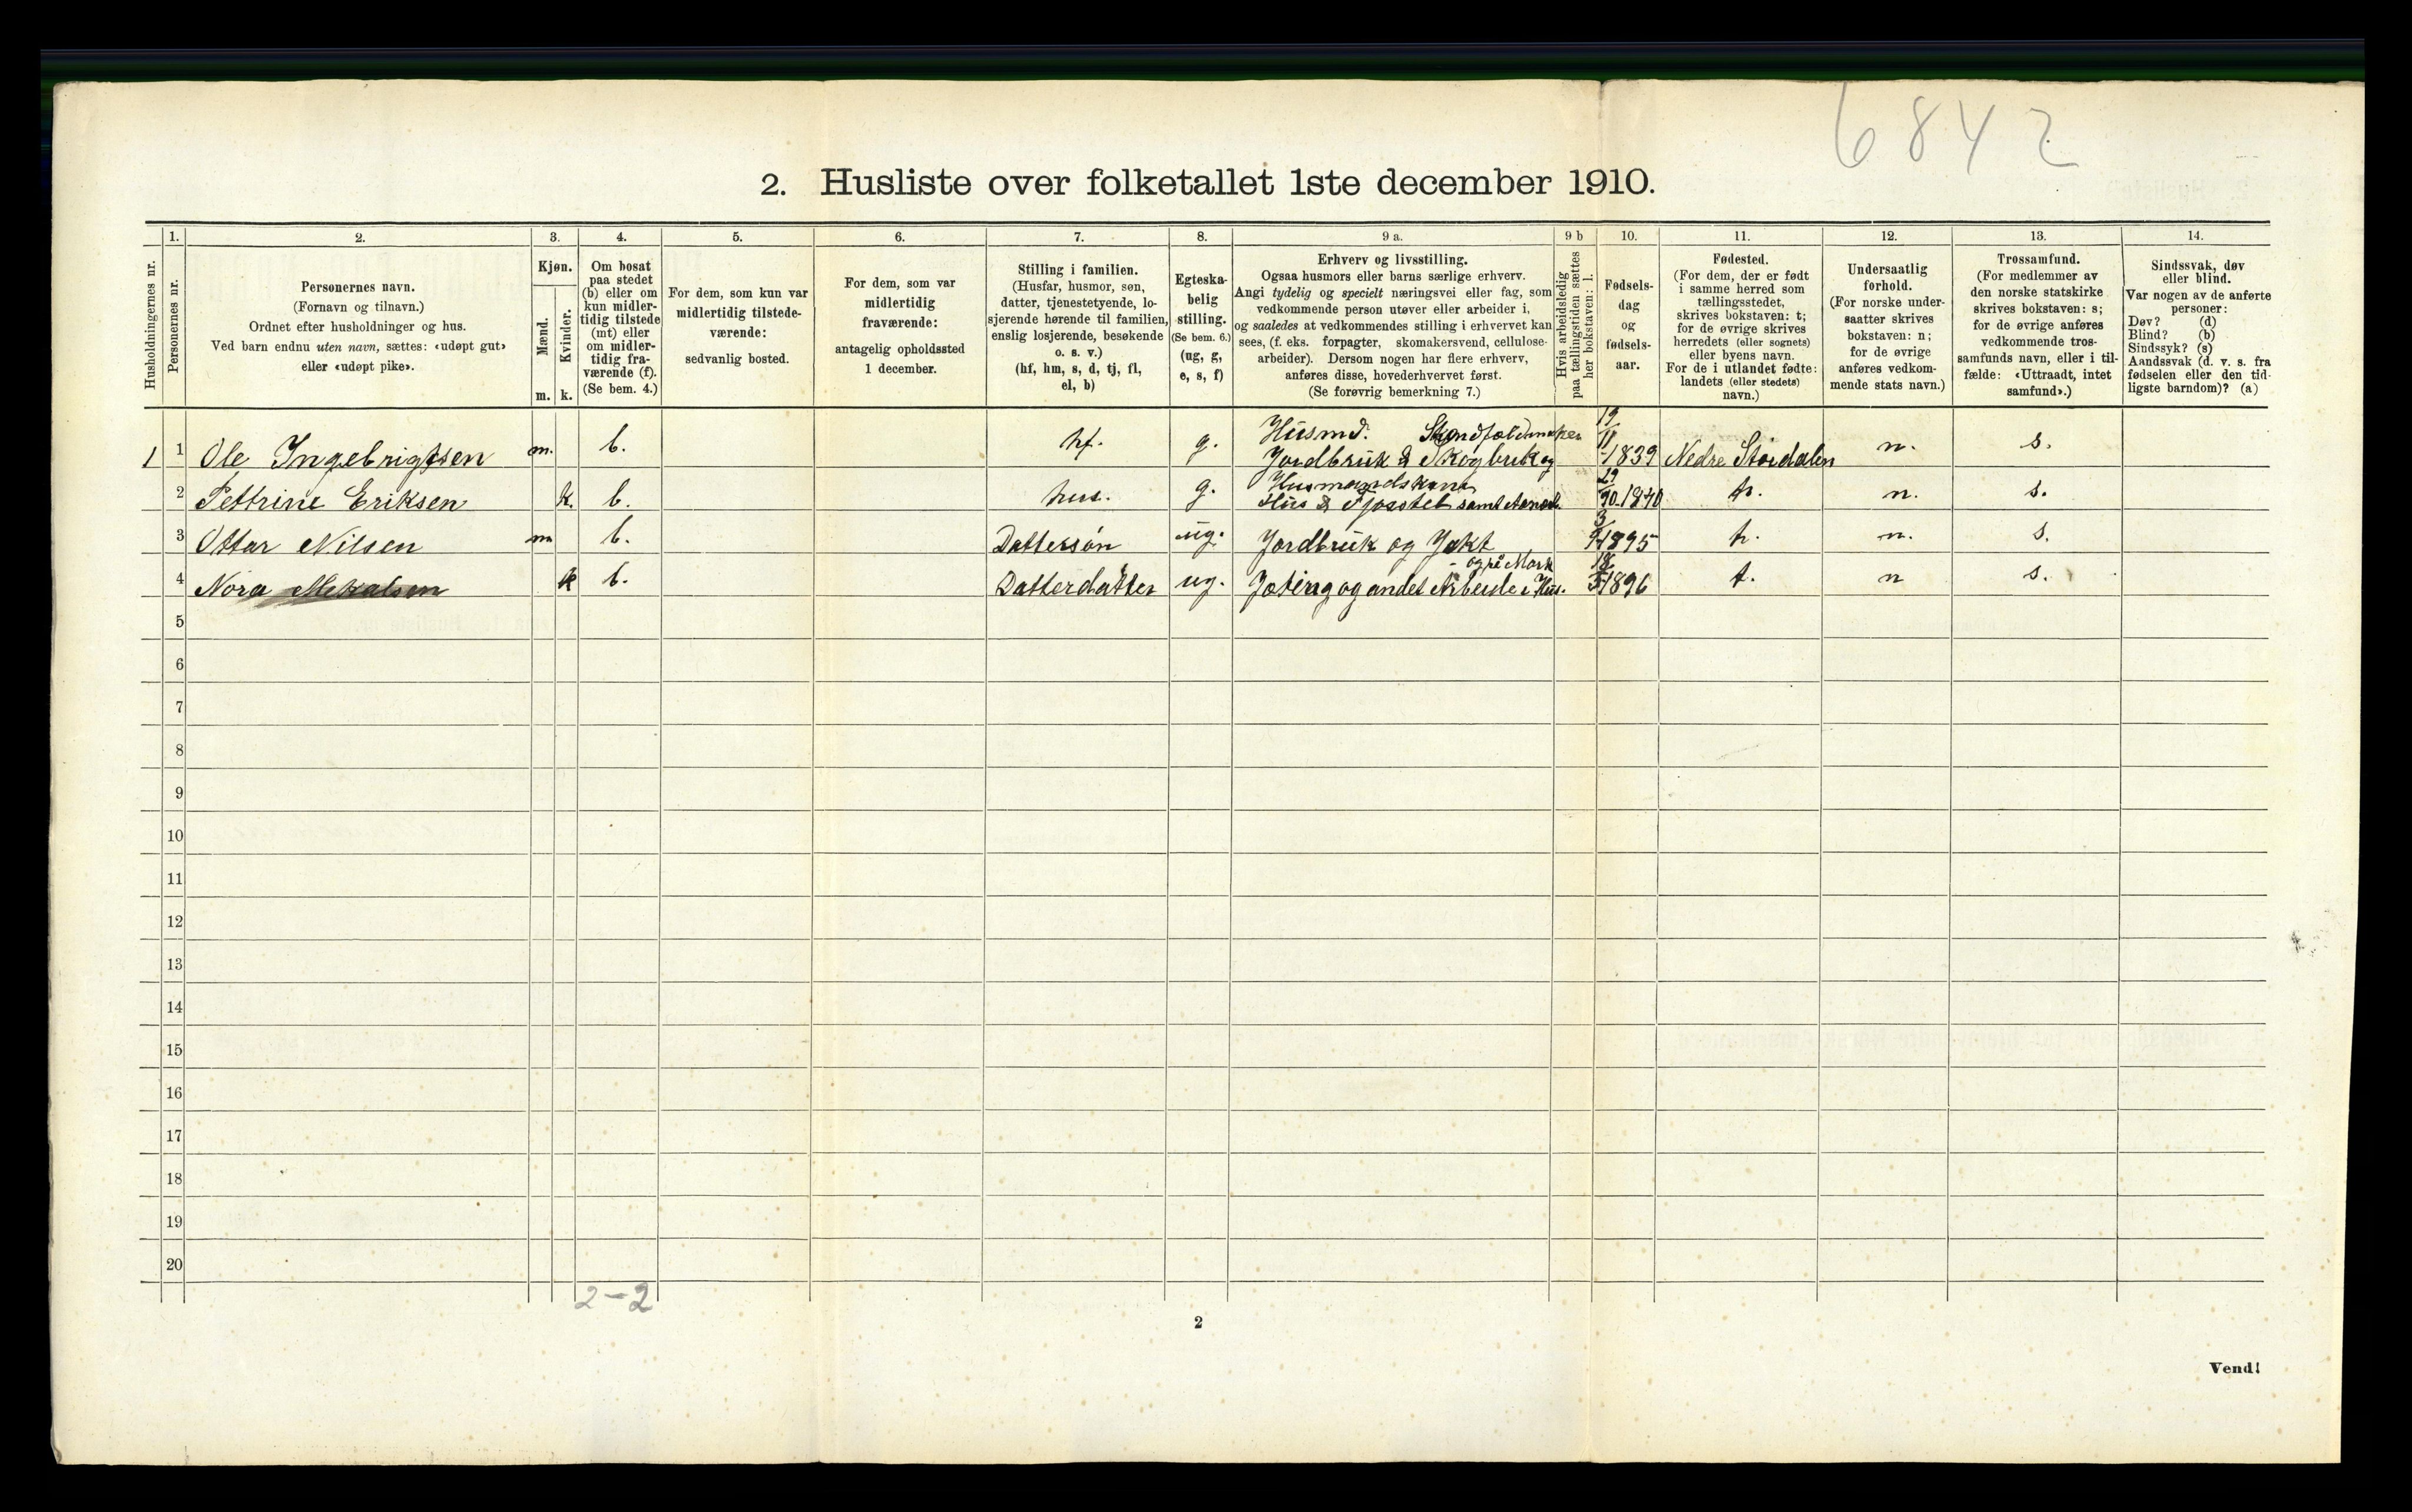 6842
2. Husliste over folketallet 1ste december 1910.
Husholdningernes nr.
1.
Personernes nr.
2.
Personernes navn.
(Fornavn og tilnavn.)
Ordnet efter husholdninger og hus.
Ved barn endnu uten navn, sættes: «udøpt gut»
eller «udøpt pike».
3.
Kjøn.
Mænd.
Kvinder.
m. k.
4.
Om bosat
paa stedet
(b) eller om
kun midler-
tidig tilstede
(mt) eller
om midler-
tidig fra-
værende (f).
(Se bem. 4.)
5.
For dem, som kun var
midlertidig tilstede-
værende:
sedvanlig bosted.
6.
For dem, som var
midlertidig
fraværende:
antagelig opholdssted
1 december.
7.
Stilling i familien.
(Husfar, husmor, søn,
datter, tjenestetyende, lo-
sjerende hørende til familien,
enslig losjerende, besøkende
o. s. v.)
(hf, hm, s, d, tj, fl,
el, b)
8.
Egteska-
belig
stilling.
(Se bem. 6.)
(ug, g,
e, s, f)
9 a.
Erhverv og livsstilling.
Ogsaa husmors eller barns særlige erhverv.
Angi tydelig og specielt næringsvei eller fag, som
vedkommende person utøver eller arbeider i,
og saaledes at vedkommendes stilling i erhvervet kan
sees, (f. eks. forpagter, skomakersvend, cellulose-
arbeider). Dersom nogen har flere erhverv,
anføres disse, hovederhvervet først.
(Se forøvrig bemerkning 7.)
9 b
Hvis arbeidsledig
paa tællingstiden sættes
her bokstaven: l.
10.
Fødsels-
dag
og
fødsels-
aar.
11.
Fødested.
(For dem, der er født
i samme herred som
tællingsstedet,
skrives bokstaven: t;
for de øvrige skrives
herredets (eller sognets)
eller byens navn.
For de i utlandet fødte:
landets (eller stedets)
navn.)
12.
Undersaatlig
forhold.
(For norske under-
saatter skrives
bokstaven: n;
for de øvrige
anføres vedkom-
mende stats navn.)
13.
Trossamfund.
(For medlemmer av
den norske statskirke
skrives bokstaven: s;
for de øvrige anføres
vedkommende tros-
samfunds navn, eller i til-
fælde: «Uttraadt, intet
samfund».)
14.
Sindssvak, døv
eller blind.
Var nogen av de anførte
personer:
Døv? (d)
Blind? (b)
Sindssyk? (s)
Aandssvak (d. v. s. fra
fødselen eller den tid-
ligste barndom)? (a)
1 1 Ole Ingebrigtsen m. b. hf. g. Husmd. Jordbruk & Skogbruk og 19/11 1839 Nedre Stordalen n. s.
2 Pettrine Eriksen k. b. hus. g. Husmandskone Hus & Fjøsstel samt 29/10. 1840 t. n. s.
3 Ottar Nilsen m b. Dattersøn ug. Jordbruk og Jakt 3/9 1895 t. n. s.
4 Nora Mekalsen k b. Datterdatter ug. Jæting og andet Arbeide i Hus. og på Mark 18/5 1896 t. n s.
5
6
7
8
9
10
11
12
13
14
15
16
17
18
19
20
2-2
2
Vend!